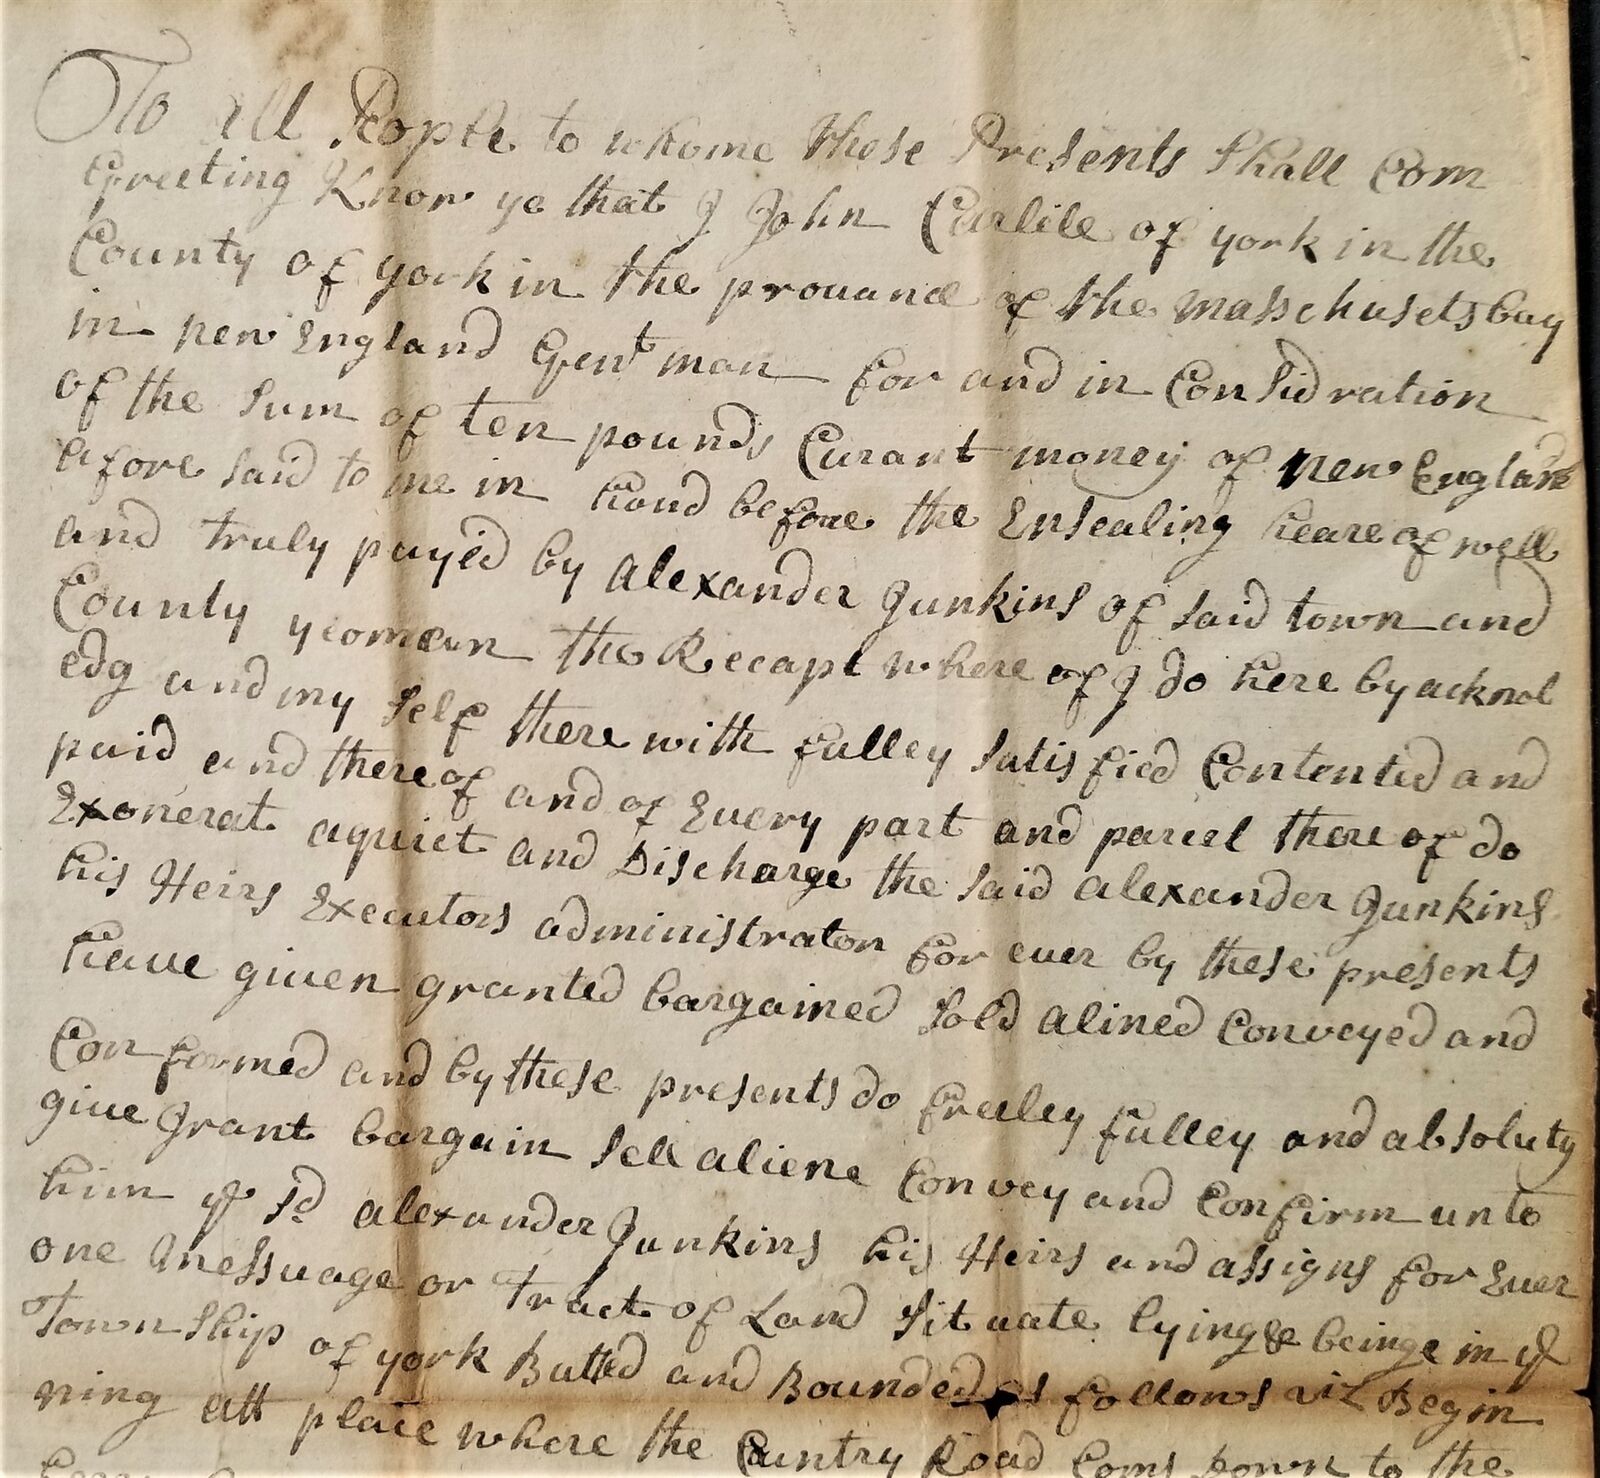 To all People to whome these Presents Shall Com
Greeting Know ye that I John Carlile of york in the
County of york in the prouance of the Masschusets bay
in new England Gent man for and in Considration
of the Sum of ten pounds Curant money of new England
afore said to me in hand before the Ensealing heare of well
and truly payed by Alexander Junkins of said town and
County yeoman the Recapt where of I do here by acknol
edg and my self there with fulley satisfied Contented and
paid and there of and of Every part and parcel there of do
Exonerat aquiet and Discharge the said alexander Junkins
his Heirs Executors administraton for euer by these presents
haue giuen granted bargained sold alined Conveyed and
Con formed and by these presents do freeley fulley and absoluty
giue grant bargain Sell aliene Convey and Confirm unto
him ye sd alexander Junkins his Heirs and assigns for Ever
one messuage or Tract of Land Situate lying & beinge in ye
Town Ship of york Butted and Bounded as follows viz Begin
ning att place where the Cuntry Road Coms down to the